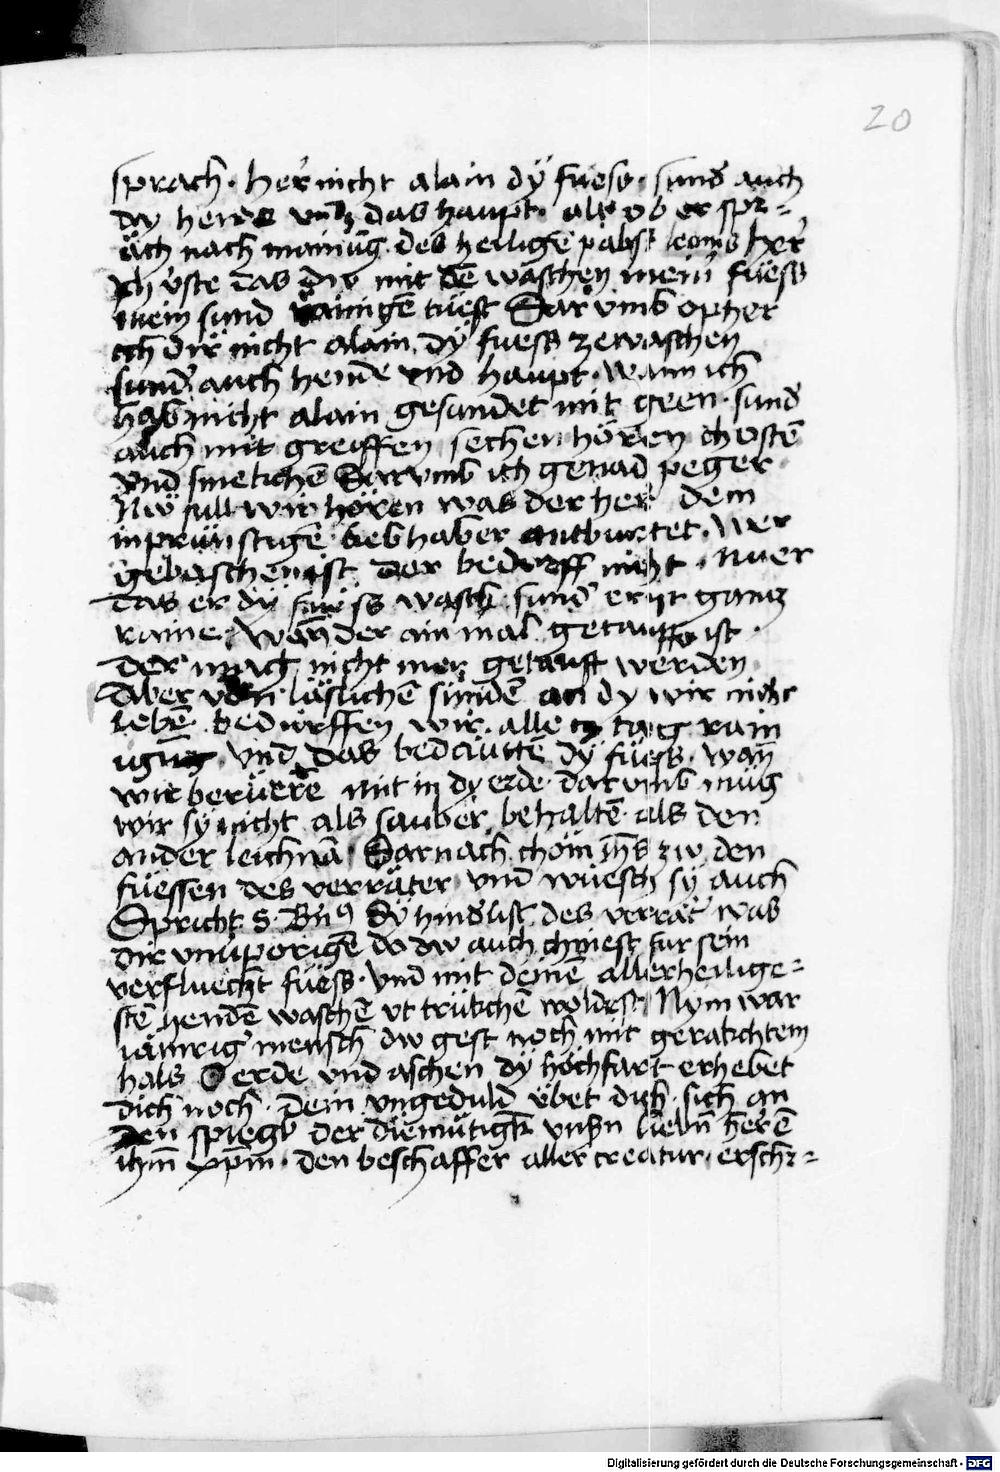 20
sprach · her̄ nicht alain dÿ füess · sund̄ auch
dy hende vnd das haupt · als ob er spr=
äch nach mainūg des heiligē pabst leonis her̄
ich waiss das dw mit dē waschen mein̄ füess
mein sund rainigē tuest Dar vmb opher
ich dir nicht alain dÿ fuess zewaschen
sund̄ auch hende vnd haupt · wann ich
hab nicht alain gesundet mit geen · sund̄
auch mit greiffen sechen hören chostē
vnd smekchē Dar vmb ich genad peger
Nw sull wir hören was der her dem
inprünstigē liebhaber antburtet · Wer
gebaschen ist der bedurff nicht · nuer
das er dÿ füess wasch sund̄ er ist gantz
raine · Wan̄ der ain mal getaufft ist ·
der mag nicht mer getaufft werden
Aber von läslichē sündē an dy wir nicht
lebē bedürffen wir alle tag rain
igūg · vnd das bedäuttē dÿ füess · wan̄
wir berüerē mit in dy erde · dar vmb müg
wir sÿ nicht als sauber behaltē als den
ander leichnā · Darnach chom ih̄s zw den
füessen des verräter vnd wuesch sÿ auch
Spricht S · Bn̄9 Dÿ hindlist des verrät̄ was
dir vnuporigē do dw auch chniest fur sein
verfluecht füess · vnd mit deinē allerheilige=
stē hendē waschē vt trükchē woldest Nym war
iämriḡ mensch dw gest noch mit gerakchtem
hals O erde vnd aschen dÿ hochfart erhebet
dich noch · dein vngeduld vbet dich · sich an
den spiegl der diemütigk vnsn̄ liebn̄ her̄ē
ih̄m xp̄m · den beschaffer aller creatur · ersch=
Digitalisierung gefördert durch die Deutsche Forschungsgemeinschaft - DFG